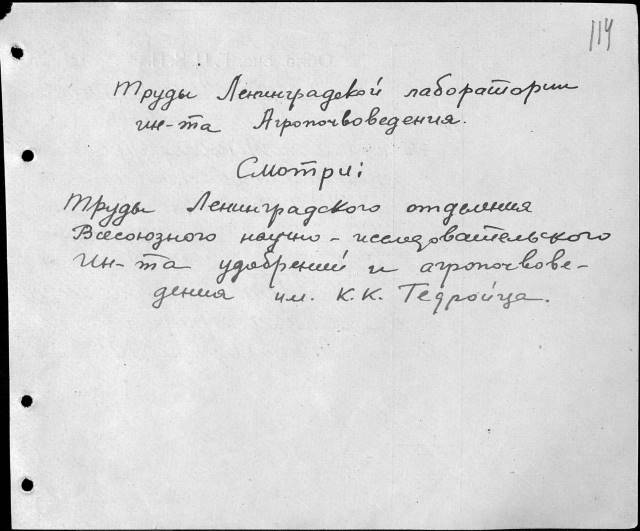 114
Труды Ленинградской лаборатории
ин-та Агропочвоведения.
Смотри:
Труды Ленинградского отделения
Всесоюзного научно-исследовательского
Ин-та удобрений и агропочвове-
дения им. К.К. Гедройца.